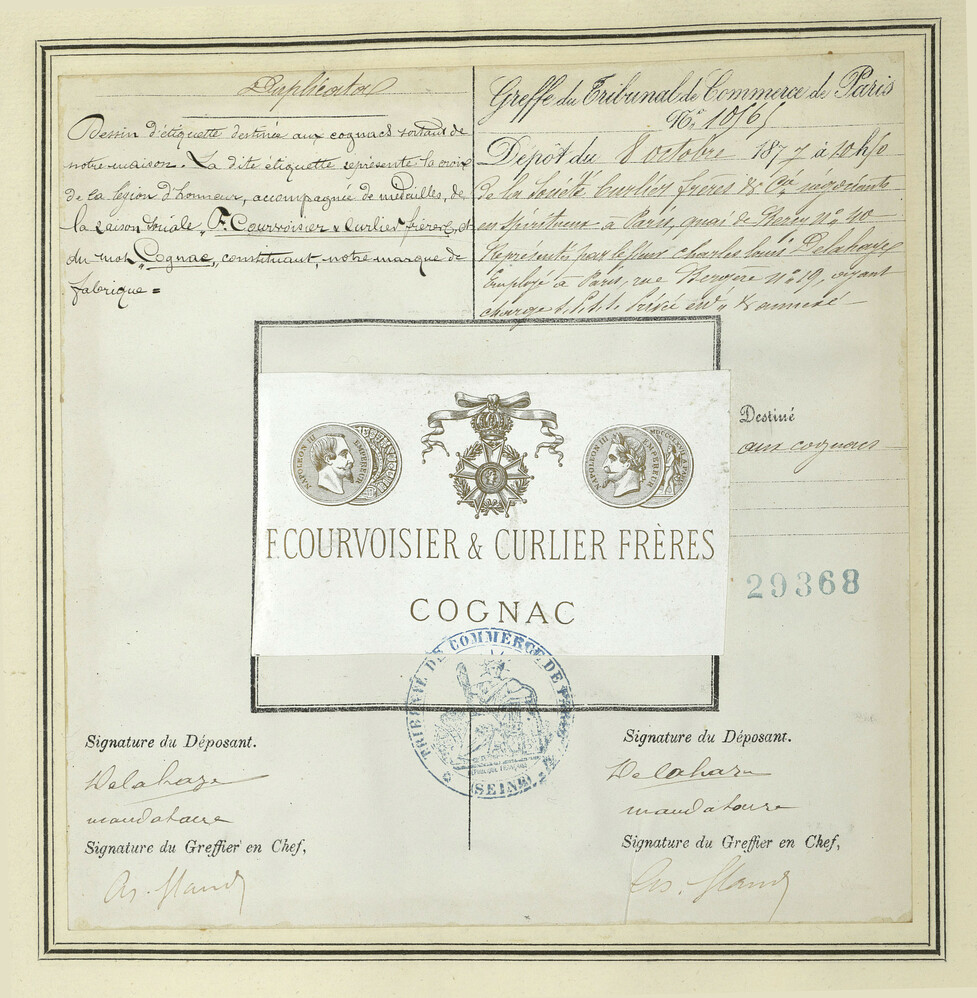 Duplicata
Dessin d'étiquette destinée aux cognacs sortant de
notre maison. La dite étiquette représente la croix
de la légion d'honneur, accompagnée de médailles, de
la raison sociale, F. Courvoisier & Curlier frères, et
du mot Cognac, constituant, notre marque de
fabrique =
Greffe du Tribunal de Commerce de Paris
No. 10565
Dépôt du 8 octobre 1877 à 10h/0
de la Société Curlier frères & Cie négociants
en spiritueux à Paris, quai de Bercy No. 40
Représentés par le sieur Charles Louis Delahaye
Employé à Paris, rue Bergère No. 19, ayant
charge
Destiné
aux cognacs
NAPOLEON III EMPEREUR
NAPOLEON III EMPEREUR
F. COURVOISIER & CURLIER FRÈRES
COGNAC
29368
TRIBUNAL DE COMMERCE DE PARIS
RÉPUBLIQUE FRANÇAISE
(SEINE)
Signature du Déposant.
Delahaye
mandataire
Signature du Greffier en Chef,
Signature du Déposant.
Delahaye
mandataire
Signature du Greffier en Chef,